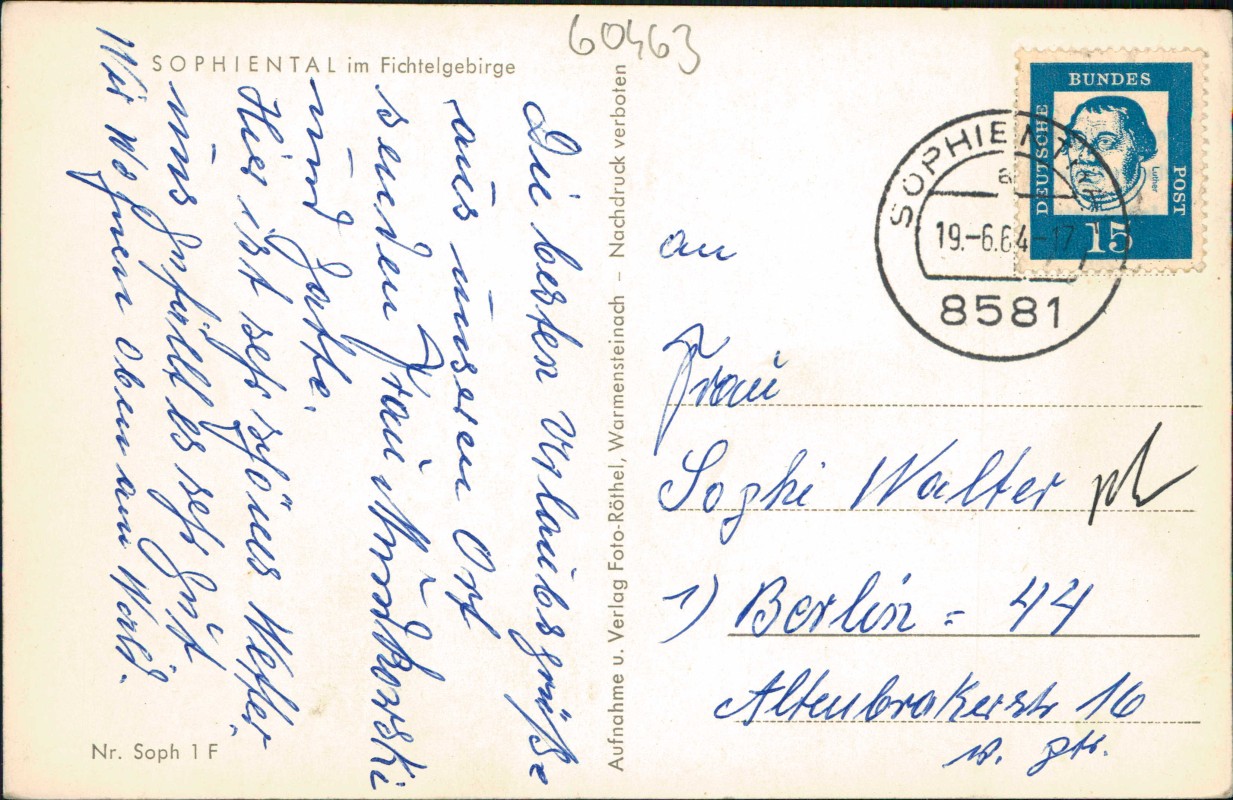 60463
SOPHIENTAL im Fichtelgebirge
Die besten Urlaubsgrüße
aus unseren Ort
senden Frau
und Gatte.
Hier ist sehr schönes Wetter,
uns gefällt es sehr gut
Wir Wohnen oben am Wald.
Nr. Soph 1 F
Aufnahme u. Verlag Foto-Röthel, Warmensteinach – Nachdruck verboten
DEUTSCHE
BUNDES
POST
Luther
15
SOPHIENTHAL
a
19.-6.64-17
8581
an
Frau
Sophi Walter
1) Berlin = 44
Altenbrakerstr 16
v. ptr.